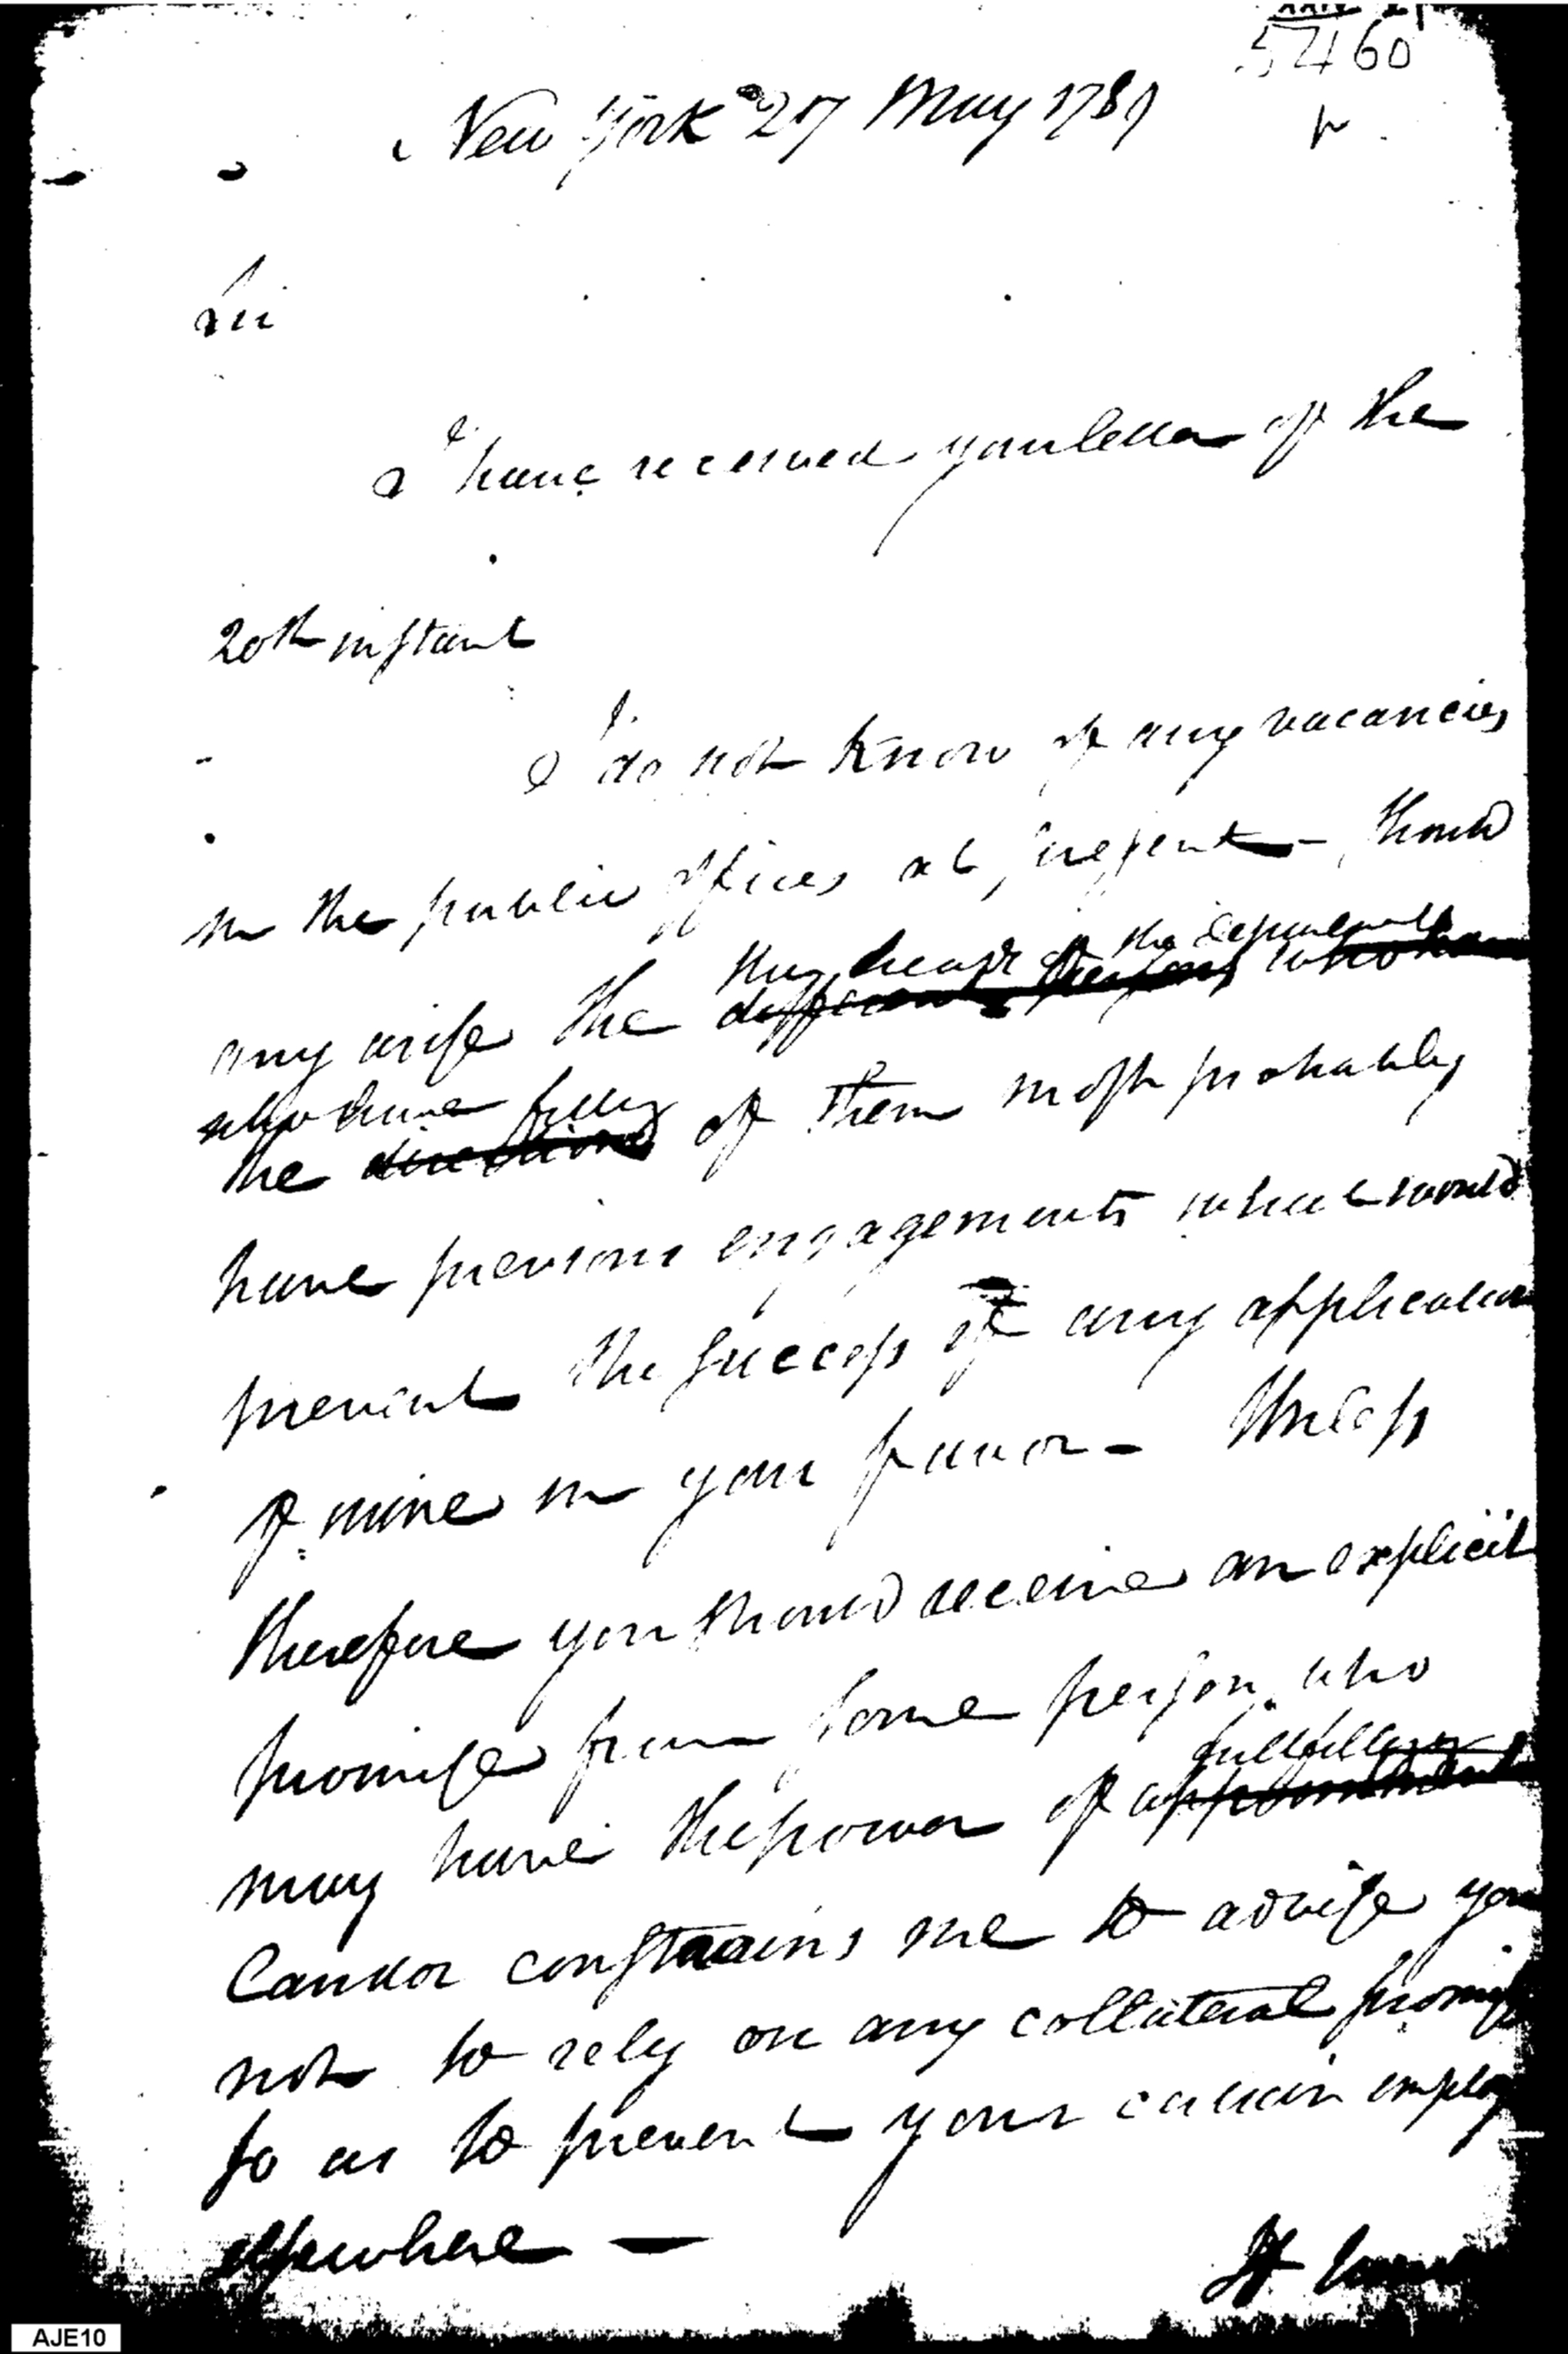 5460
New York 27 May 1789
Sir
I have received your letter of the
20th instant
I do not know of any vacancies
in the public offices at present – should
the heads of the departments
any arise the different persons who have
who have filling
the direction of them most probably
have previous engagements what would
prevent the success of any application
of mine in your favor – Unless
therefore you should receive an explicit
promise from some person who
fullfilling
may have the power of appointment
Candor constrains me to advise you
not to rely on any collateral promise
so as to prevent your certain employ
elsewhere —
AJE10